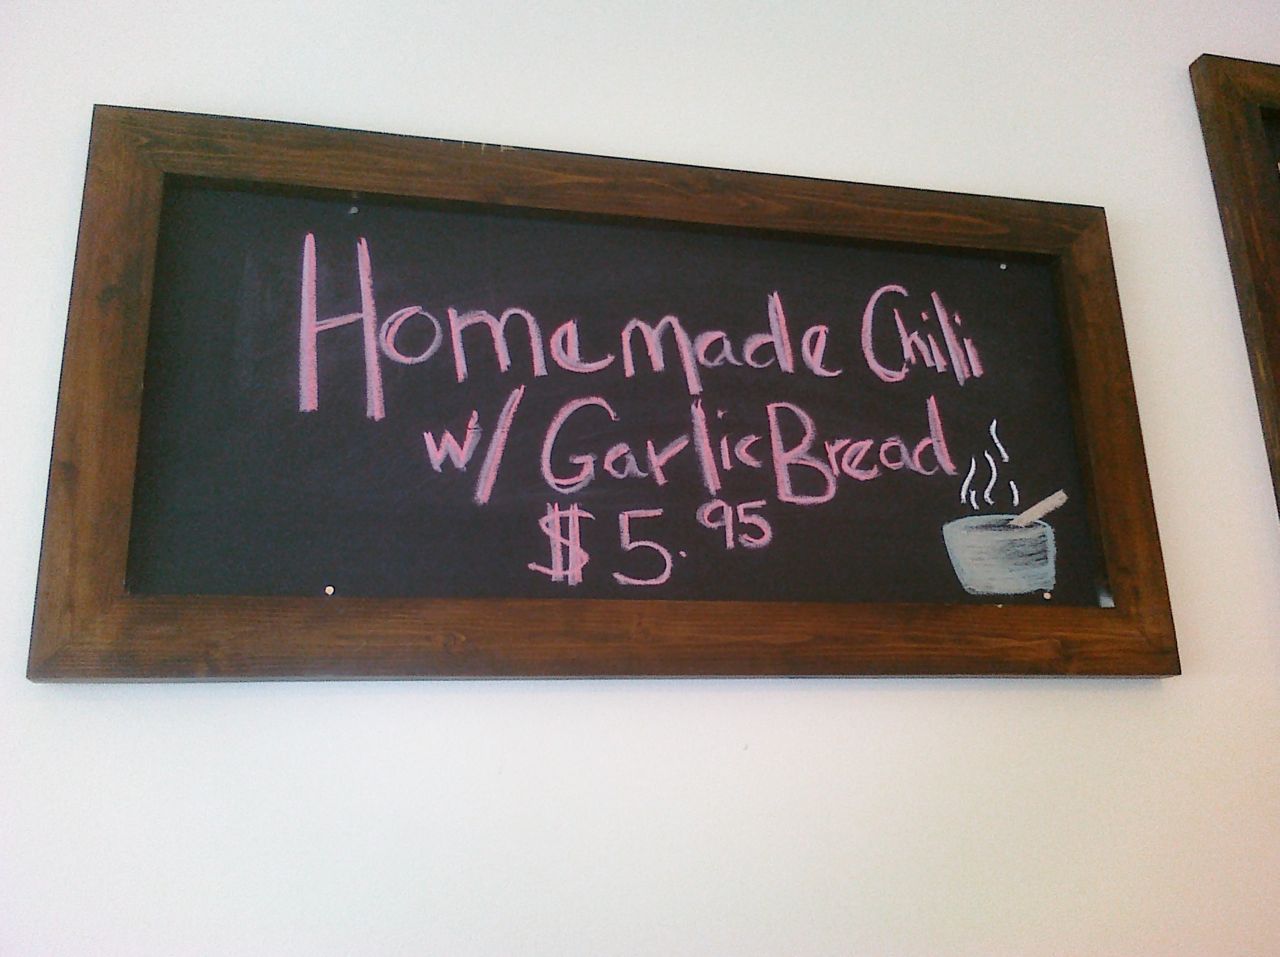 Homemade Chili
w/ Garlic Bread
$5.95